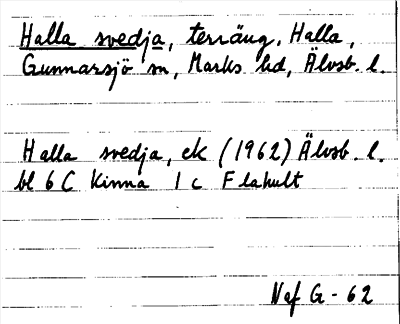 Halla svedja, terräng, Halla,
Gunnarsjö sn, Marks hd, Älvsb. l.
Halla svedja, ek (1962) Älvsb. l.
bl 6 C Kinna 1 c Flahult
Naf G - 62